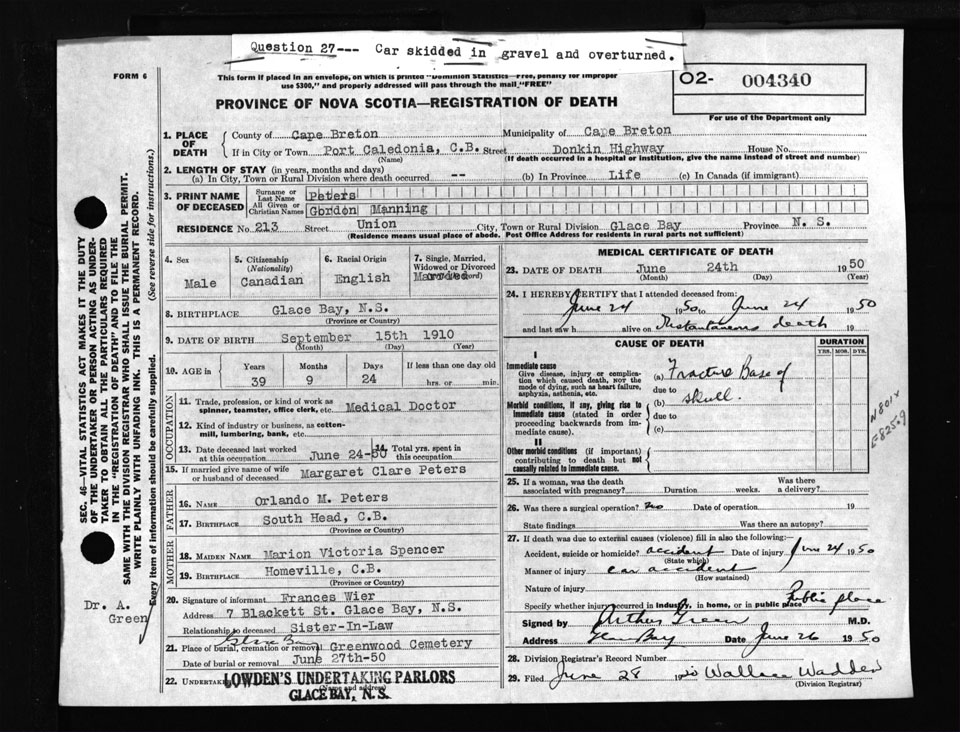 Question 27--- Car skidded in gravel and overturned.
FORM 6
This form if placed in an envelope, on which is printed "Dominion Statistics—Free, penalty for improper
use $300," and properly addressed will pass through the mail "FREE"
O2- 004340
For use of the Department only
PROVINCE OF NOVA SCOTIA—REGISTRATION OF DEATH
SEC. 46—VITAL STATISTICS ACT MAKES IT THE DUTY
OF THE UNDERTAKER OR PERSON ACTING AS UNDER-
TAKER TO OBTAIN ALL THE PARTICULARS REQUIRED
IN THE "REGISTRATION OF DEATH" AND TO FILE THE
SAME WITH THE DIVISION REGISTRAR WHO SHALL ISSUE THE BURIAL PERMIT.
WRITE PLAINLY WITH UNFADING INK. THIS IS A PERMANENT RECORD.
Every item of information should be carefully supplied. (See reverse side for instructions.)
Dr. A.
Green
1. PLACE OF DEATH
County of Cape Breton Municipality of Cape Breton
If in City or Town Port Caledonia, C.B. Street Donkin Highway House No.
(Name) (If death occurred in a hospital or institution, give the name instead of street and number)
2. LENGTH OF STAY (in years, months and days)
(a) In City, Town or Rural Division where death occurred -- (b) In Province Life (c) In Canada (if immigrant)
3. PRINT NAME OF DECEASED
Surname or Last Name Peters
All Given or Christian Names Gordon Manning
RESIDENCE No. 213 Street Union City, Town or Rural Division Glace Bay Province N. S.
(Residence means usual place of abode. Post Office Address for residents in rural parts not sufficient)
4. Sex Male
5. Citizenship (Nationality) Canadian
6. Racial Origin English
7. Single, Married, Widowed or Divorced Married
8. BIRTHPLACE Glace Bay, N.S.
(Province or Country)
9. DATE OF BIRTH September 15th 1910
(Month) (Day) (Year)
10. AGE in Years 39 Months 9 Days 24 If less than one day old hrs. or min.
OCCUPATION
11. Trade, profession, or kind of work as spinner, teamster, office clerk, etc. Medical Doctor
12. Kind of industry or business, as cotton-mill, lumbering, bank, etc.
13. Date deceased last worked at this occupation June 24-50
14. Total yrs. spent in this occupation
15. If married give name of wife or husband of deceased Margaret Clare Peters
FATHER
16. NAME Orlando M. Peters
17. BIRTHPLACE South Head, C.B.
(Province or Country)
MOTHER
18. MAIDEN NAME Marion Victoria Spencer
19. BIRTHPLACE Homeville, C.B.
(Province or Country)
20. Signature of informant Frances Wier
Address 7 Blackett St. Glace Bay, N.S.
Relationship to deceased Sister-In-Law
Glace Bay
21. Place of burial, cremation or removal Greenwood Cemetery
Date of burial or removal June 27th-50
22. UNDERTAKER LOWDEN'S UNDERTAKING PARLORS
(Name and address)
GLACE BAY, N. S.
MEDICAL CERTIFICATE OF DEATH
23. DATE OF DEATH June 24th 1950
(Month) (Day) (Year)
24. I HEREBY CERTIFY that I attended deceased from:
June 24 1950 to June 24 1950
and last saw h alive on Instantaneous death 19
CAUSE OF DEATH
DURATION
YRS. MOS. DYS.
I
Immediate cause
Give disease, injury or complication which caused death, NOT the mode of dying, such as heart failure, asphyxia, asthenia, etc.
(a) Fracture Base of
due to
(b) skull.
Morbid conditions, if any, giving rise to immediate cause (stated in order proceeding backwards from immediate cause).
due to
(c)
II
Other morbid conditions (if important) contributing to death but not causally related to immediate cause.
N801x
E825.9
25. If a woman, was the death associated with pregnancy? Duration weeks. Was there a delivery?
26. Was there a surgical operation? no Date of operation 19
State findings Was there an autopsy?
27. If death was due to external causes (violence) fill in also the following:—
Accident, suicide or homicide? accident Date of injury June 24 1950
(State which)
Manner of injury car accident
(How sustained)
Nature of injury
Specify whether injury occurred in industry, in home, or in public place Public place
Signed by Arthur Green M.D.
Address Glace Bay Date June 26 1950
28. Division Registrar's Record Number
29. Filed June 28 1950 Wallace Wadden
(Division Registrar)